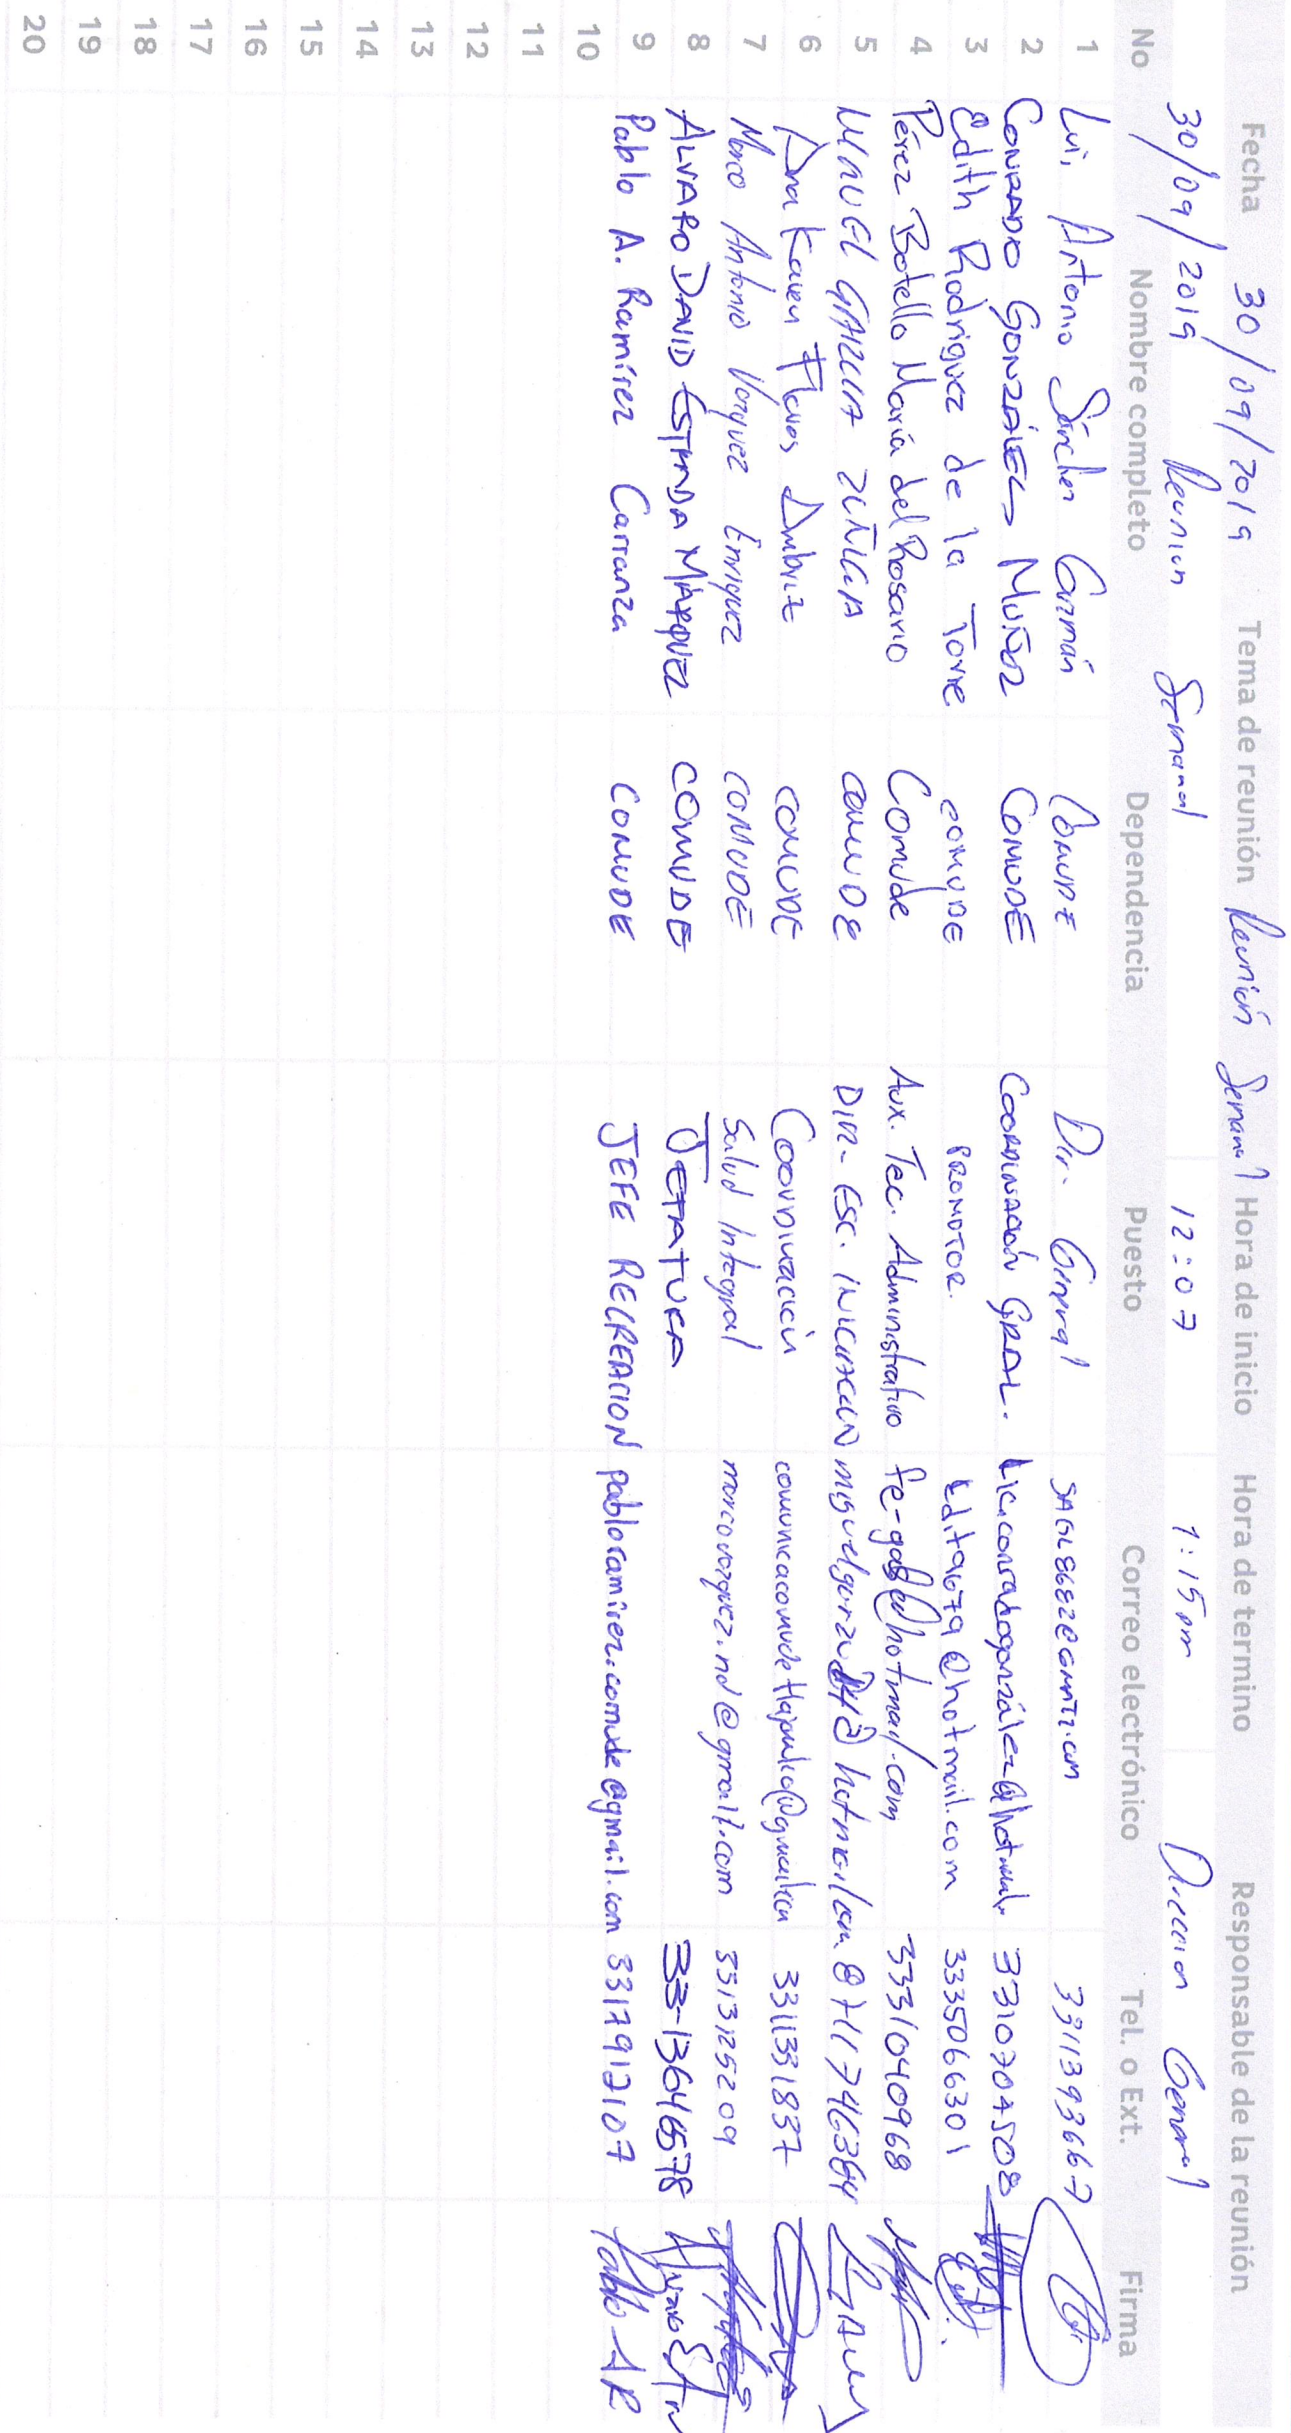 Fecha 30/09/2019 Tema de reunión Reunión Semanal Hora de inicio Hora de termino Responsable de la reunión
30/09/2019 Reunion Semanal 12:07 1:15 pm Direccion General
No Nombre completo Dependencia Puesto Correo electrónico Tel. o Ext. Firma
1 Luis Antonio Sánchez Guzmán COMUDE Dir. General 3311393667
2 CONRADO GONZÁLEZ MUÑOZ COMUDE COORDINACIÓN GRAL. 3310704508
3 Edith Rodriguez de la Torre COMUDE PROMOTOR. Edita1679@hotmail.com 3335066301
4 Pérez Botello María del Rosario Comude Aux. Tec. Administrativo 3331040968
5 MIGUEL GARCIA ZUÑIGA COMUDE DIR. ESC. INICIACION
6 Ana Karen Flores Ambriz COMUDE Coordinación 3311331837
7 Marco Antonio Vazquez Enriquez COMUDE Salud Integral marcovazquez.nd@gmail.com 3313125209
8 ALVARO DAVID ESTRADA MÁRQUEZ COMUDE JEFATURA 33-13646578
9 Pablo A. Ramírez Carranza COMUDE JEFE RECREACION pabloramirez.comude@gmail.com 3317917107 Pablo AR
10
11
12
13
14
15
16
17
18
19
20